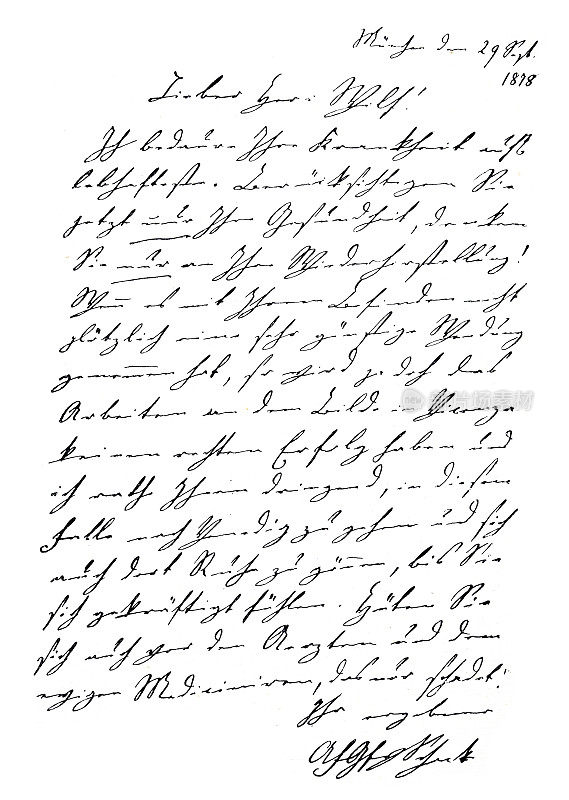 München den 29 Sept.
1878
Lieber Herr Wolf!
Ich bedaure Ihre Krankheit aufs
lebhafteste. Berücksichtigen Sie
jetzt nur Ihre Gesundheit, denken
Sie nur an Ihre Wiederherstellung!
Wenn es mit Ihrem Befinden nicht
plötzlich eine sehr günstige Wendung
genommen hat, so wird jedoch das
Arbeiten an dem Bilde in Vicenza
keinen rechten Erfolg haben und
ich rathe Ihnen dringend, in diesem
Falle nach Venedig zu gehen und sich
auch dort Ruhe zu gönnen, bis Sie
sich gekräftigt fühlen. Hüten Sie
sich auch vor den Aerzten und dem
ewigen Mediciniren, das nur schadet!
Ihr ergebener
Schack
new